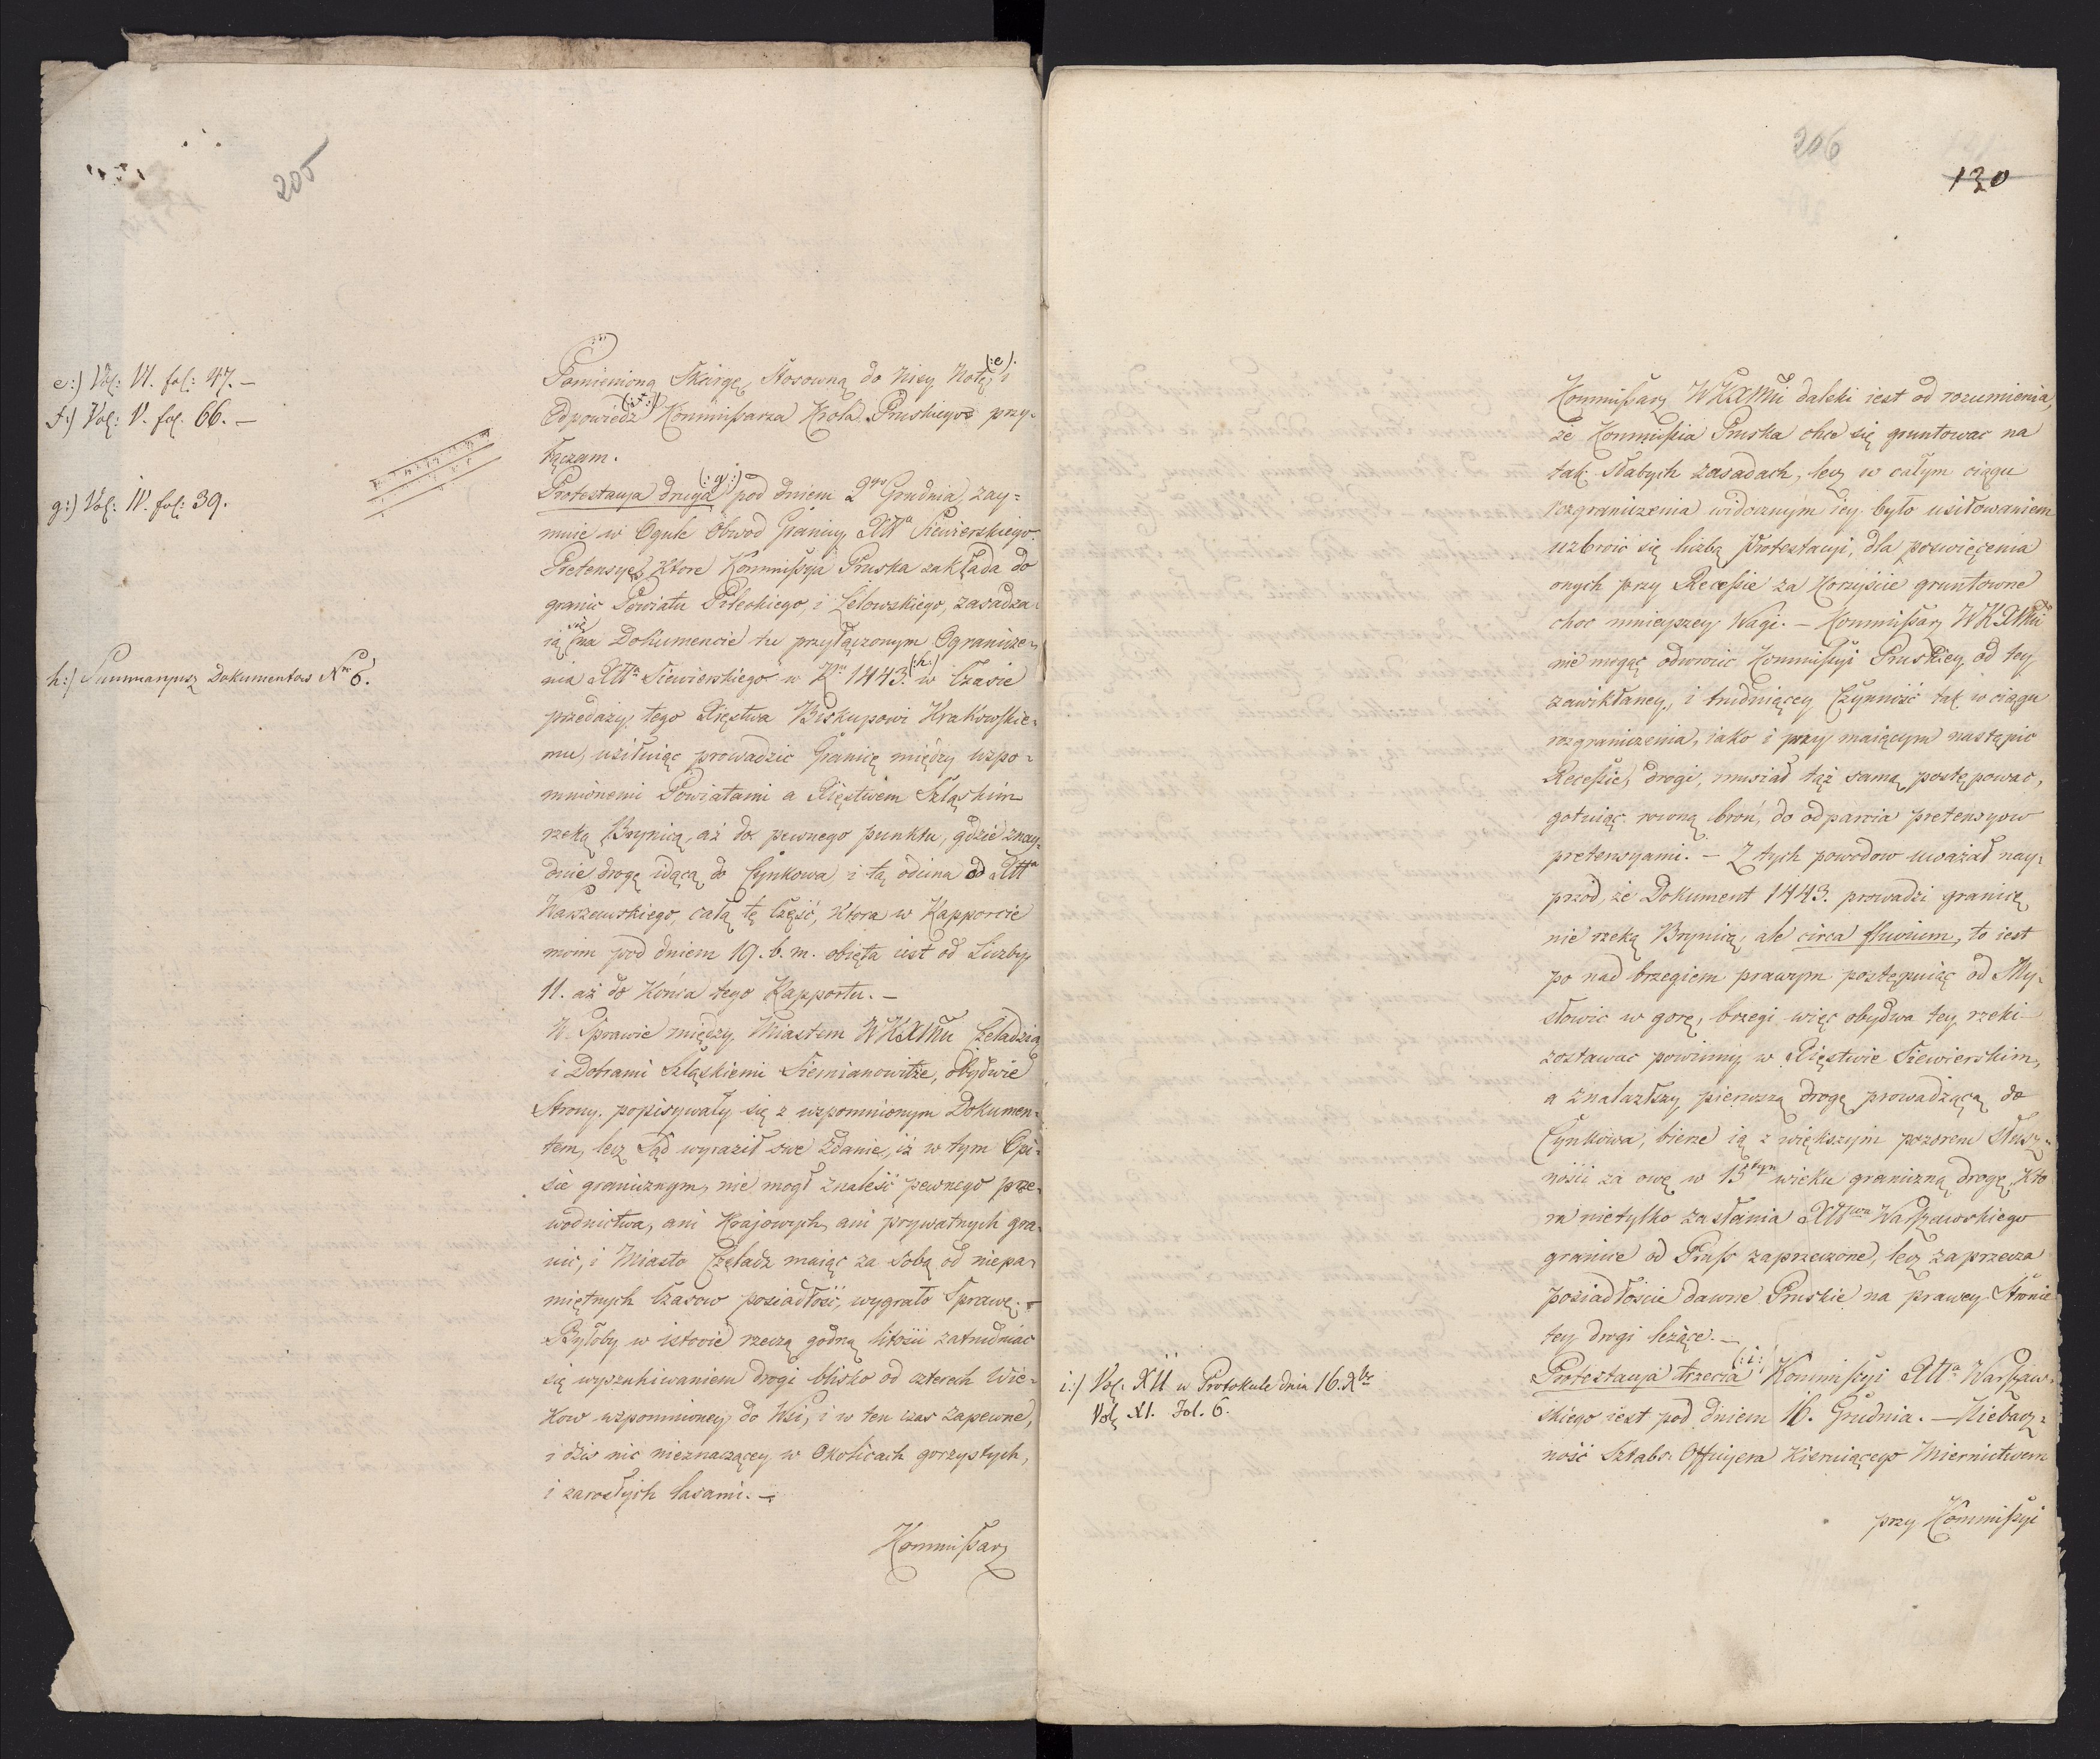 205
e:) Vol: VI. fol: 47. –
f:) Vol: V. fol. 66. –
g:) Vol: IV. fol: 39.
h:) Summaryusz Dokumentow Nro 6.
Pomienioną Skargę, Stosowną do Niey Notę (:e:) i
Odpowiedź (:f:) Kommissarza Krola Pruskiego przy-
łączam.
Protestacya druga (:g:) pod dniem 2go Grudnia, zay=
muie w Ogule Obwod Granicy Xttа Siewierskiego.
Pretensye, ktore Kommissya Pruska zakłada do
granic Powiatu Pileckiego, i Lelowskiego, zasadza-
ią się na Dokumencie tu przyłączonym Ogranicze-
nia Xtta Siewierskiego w Rku 1443. (:h:) w Czasie
przedaży tego Xięstwa Biskupowi Krakowskie-
mu, usiłuiąc prowadzić Granicę między wspo-
mnionemi Powiatami a Xięstwem Szląskim
rzeką Brynicą, aż do pewnego punktu, gdzie znay-
duie drogę idącą do Cynkowa, i tą odcina od Xtta
Warszawskiego, całą tę Część, ktora w Rapporcie
moim pod dniem 19. b. m. obięta iest od Liczby
11. aż do Końca tego Rapportu. –
W Sprawie między Miastem WKXMci Czeladzią
i Dobrami Szląskiemi Siemianowitze, obydwie
Strony popisywały się z wspomnionym Dokumen-
tem, lecz Sąd wyraził swe Zdanie, iż w tym Opi-
sie granicznym, nie mogł znaleść pewnego prze-
wodnictwa, ani Krajowych, ani prywatnych gra-
nic, i Miasto Czeladz maiąc za Sobą od niepa-
miętnych Czasow posiadłość, wygrało Sprawę. –
Byłoby w istocie rzeczą godną litości zatrudniać
się wyszukiwaniem drogi blisko od czterech Wie-
kow wspomnioney, do Wsi, i w ten czas zapewne,
i dziś nic nieznaczącey, w Okolicach gorzystych,
i zarosłych lasami. –
Kommissarz
206
130
i:) Vol: XII w Protokule dnia 16. Xbr
Vol: XI. Fol. 6.
Kommissarz WKXMci daleki iest od rozumienia,
że Kommissia Pruska chce się gruntowac na
tak Słabych zasadach, lecz w całym ciągu
rozgraniczenia widocznym iey było usiłowaniem
uzbroić się liczbą Protestacyi, dla poswięcenia
onych przy Recessie za Korzyście gruntowne
choc mnieyszey Wagi. – Kommissarz WKXMci
nie mogąc odwrocic Kommissyi Pruskiey od tey
zawikłaney, i trudniącey Czynność tak w ciągu
rozgraniczenia, iako i przy maiącym nastąpic
Recessie, drogi, musiał tąż samą postępować,
gotuiąc rowną broń, do odparcia pretensyow
pretensyami. – Z tych powodow uważał nay-
przod, że Dokument 1443. prowadzi granicę
nie rzeką Brynicą, ale circa fluvium, to iest
po nad brzegiem prawym postępuiąc od My-
słowic w gorę, brzegi więc obydwa tey rzeki
zostawac powinny w Xięstwie Siewierskim,
a znalazłszy pierwszą drogę prowadzącą do
Cynkowa, bierze ią z większym pozorem Słusz-
ności za owę w 15tym wieku graniczną drogę, kto
ra nietylko zasłania Xttwa Warszawskiego
granice od Pruss zaprzeczone, lecz zaprzecza
posiadłoscie dawne Pruskie na prawey Stronie
tey drogi leżące. –
Protestacya trzecia (:i:) Kommissyi Xtta Warszaw-
skiego iest pod dniem 16. Grudnia. – Niebacz-
ność Sztabs Officyera Kieruiącego Miernictwem
przy Kommissyi